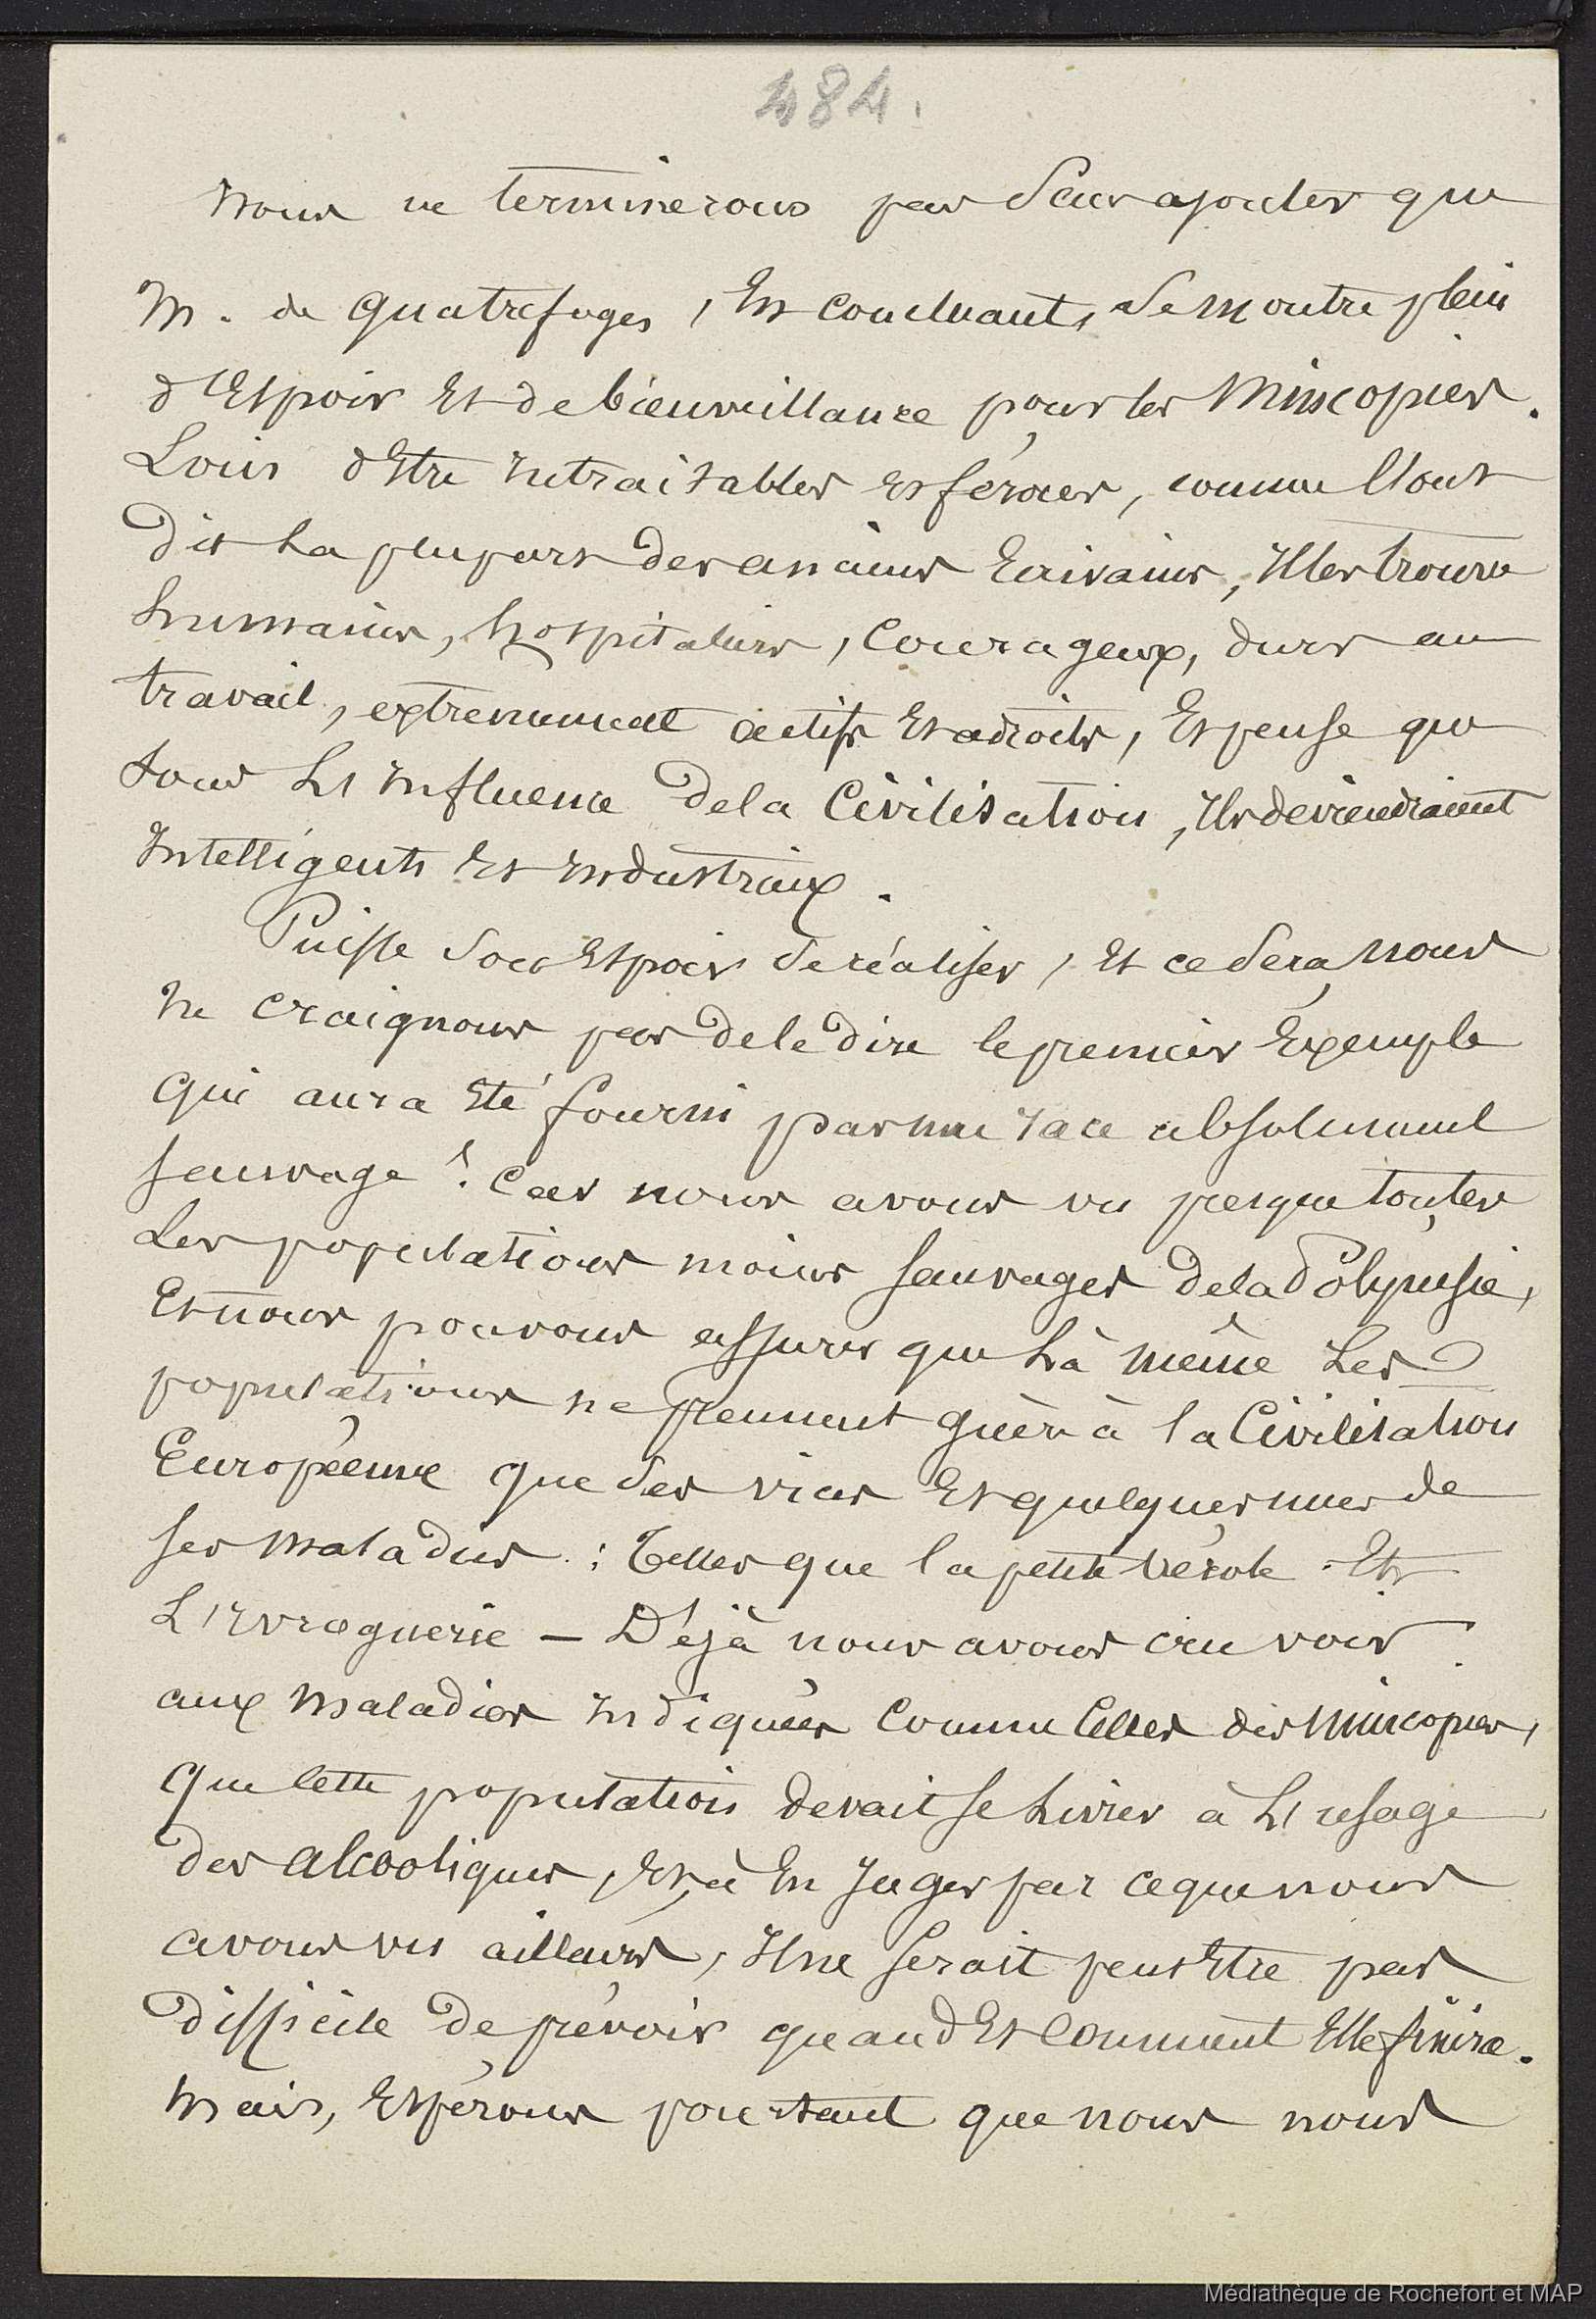 484.
Nous ne terminerons pas sans ajouter que
M. de Quatrefages, En concluant, se montre plein
d'Espoir Et de bienveillance pour les Mincopies.
Loin d'Etre Intraitables Et féroces, comme l'ont
dit La plupart des anciens Ecrivains, Il les trouve
humains, hospitaliers, Courageux, durs au
travail, extremement actifs Et adroits, Et pense que
sous L'Influence de la Civilisation, Ils deviendraient
Intelligents Et Industrieux.
Puisse son Espoir se réaliser, Et ce sera, nous
ne craignons pas de le dire le premier Exemple
qui aura Eté fourni par une race absolument
sauvage! Car nous avons vu presque toutes
Les populations moins sauvages de la Polynésie,
Et nous pouvons assurer que Là même Les
populations ne prennent guère à la Civilisation
Européenne que ses vices Et quelques unes de
ses maladies : Telles que la petite Vérole Et
L'Ivrognerie — Déjà nous avons cru voir
aux Maladies Indiquées Comme Celles des Mincopies,
que Cette population devait se Livrer à L'usage
des alcooliques, Et, à En Juger par ce que nous
avons vu ailleurs, Il ne serait peut Etre pas
difficile de prévoir quand Et Comment Elle finira.
Mais, Espérons pourtant que nous nous
Médiathèque de Rochefort et MAP